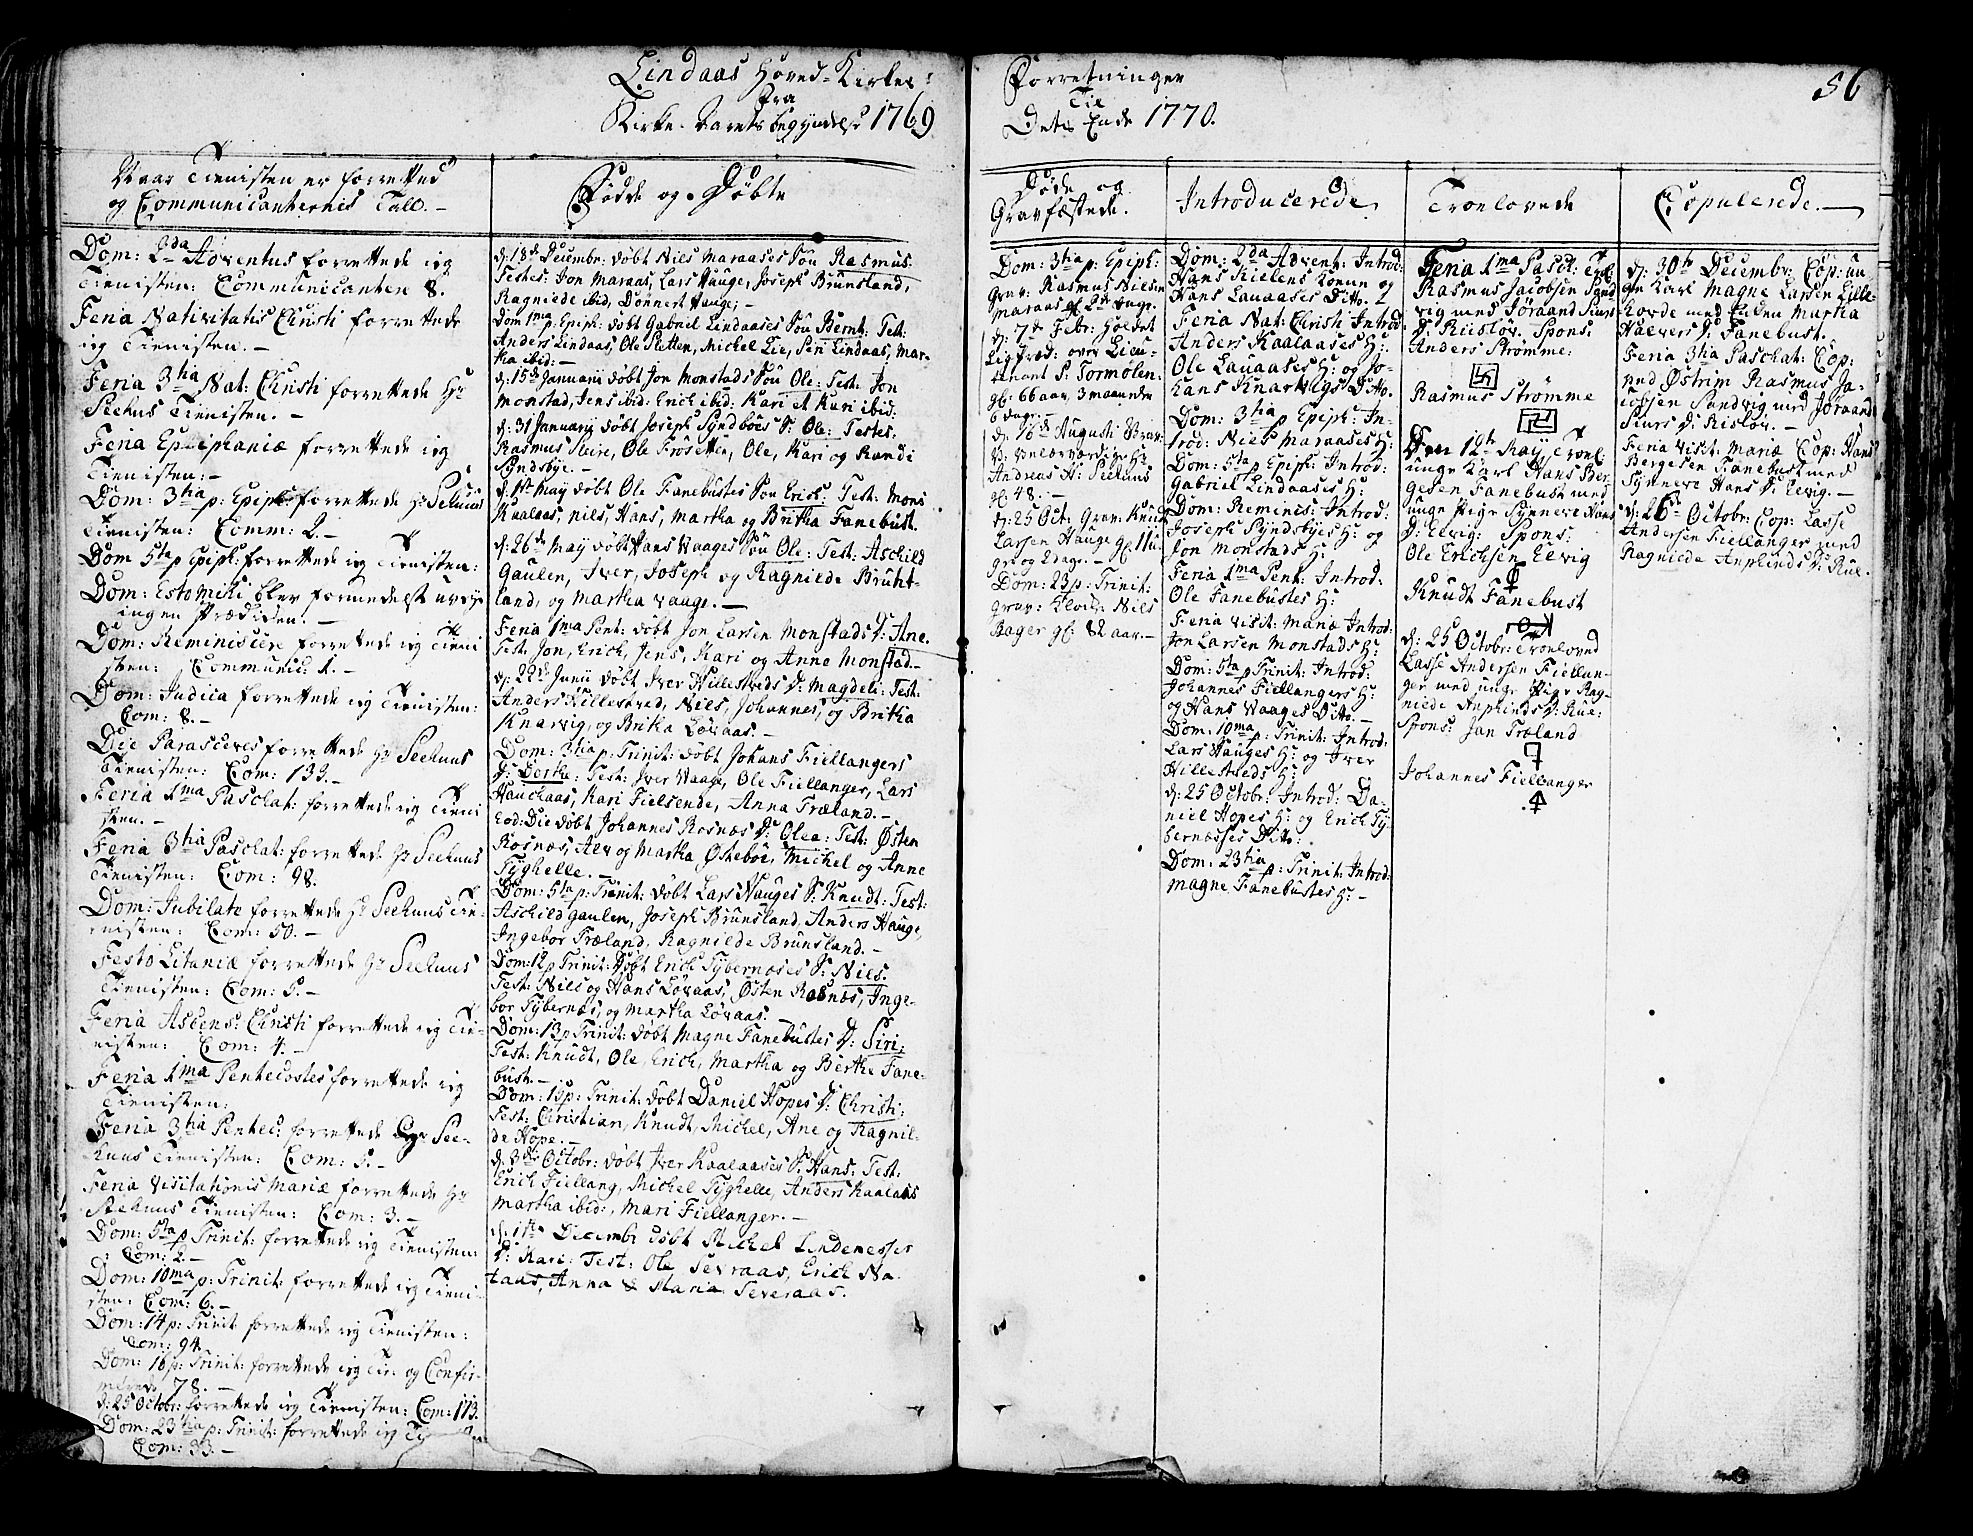 Lindaas Hoved-Kirkes
Fra
Kirke-Aarets begyndelse 1769
Hvor Tienisten er forretted
og Communicanternis Tall. -
Dom: 2da Adventus forrettede ieg
Tienisten: Communicanter 8.
Feria Nativitatis Christi forrettede
ieg Tienisten. -
Feria 3tia Nat: Christi forrettede Hr
Seehus Tienisten. -
Feria Epiphaniæ forrettede ieg
Tienisten: -
Dom: 3tia p: Epiph: forrettede Hr Seehuus
Tienisten: Comm: 2. -
Dom 5ta p Epiph: forrettede ieg Tienisten:
Dom: Estomihi blev formedelst uveyr
ingen Prædiken. -
Dom: Reminiscere forrettede ieg Tieni
sten: Communic: 1. -
Dom: Judica forrettede ieg Tienisten:
Com: 8. -
Die Parasceves forrettede Hr Seehuus
Tienisten: Com: 133. -
Feria 1ma Paschat: forrettede ieg Tieni
sten. -
Feria 3tia Paschat: forrettede Hr Seehuus
Tienisten: Com: 98.
Dom: Jubilate forrettede Hr Seehuus Tie-
nisten: Com: 50. -
Festo Litaniæ forrettede Hr Seehuus
Tienisten: Com: 5. -
Feria Ascens: Christi forrettede ieg Tie-
nisten: Com: 4. -
Feria 1ma Pentecostes forrettede ieg
Tienisten:
Feria 3tia Pentec: forrettede Hr See-
huus Tienisten: Com: 5. -
Feria Visitationis Mariæ forrettede Hr
Seehuus Tienisten: Com: 3. -
Dom: 5ta p Trinit: forrettede ieg Tienisten:
Com: 2. -
Dom: 10ma p: Trinit: forrettede ieg Tieni
sten: Com: 6. -
Dom: 14 p: Trinit forrettede ieg Tienisten:
Com: 94.
Dom: 16 p: Trinit: forrettede ieg Tie: og Confir-
merede 78. -
d: 25 Octobr: forrettede ieg Tienisten: Com: 113.
Dom: 23tia p: Trinit: forrettede ieg
Com: 33. -
Fødde og Døbte
d: 18de Decembr: døbt Niels Maraases Søn Rasmus:
Testes: Jon Maraas, Lars Hauge, Joseph Brunsland,
Ragniede ibid, Donnert Hauge; -
Dom 1ma p: Epiph: døbt Gabriel Lindaases Søn Bernt: Test:
Anders Lindaas, Ole Sætter, Michel Lie, Siri Lindaas, Mar-
tha ibid: -
d: 15de Januarii døbt Jon Monstads Søn Ole: Test: Jon
Monstad, Jens ibid: Erich ibid: Kari et Kari ibid:
d: 31 Januarii døbt Joseph Syndbøes S: Ole: Testes:
Rasmus Fleire, Ole Frosetter, Ole, Kari og Randi
Syndsbye. -
d: 1st May døbt Ole Fanebustes Søn Erich: Test: Mons
Kaalaas, Niels, Hans, Martha og Britha Fanebust.
d: 26de May døbt Hans Vaages Søn Ole: Test: Aschild
Gaulen, Iver, Joseph og Ragnilde Brunt-
land, og Martha Vaage. -
Feria 1ma Pent: døbt Jon Larsen Monstads D: Ane.
Test: Jon, Erich, Jens, Kari og Anne Monstad. -
d: 22de Junii døbt Iver Hillestveds D: Magdeli: Test:
Anders Hillestved, Niels, Johannes, og Britha
Knarvig, og Britha Løvaas. -
Dom: 3tia p: Trinit: døbt Johans Fiellangers
D: Dorthe: Test: Iver Vaage, Ole Fiellanger, Lars
Hauchaas, Kari Fielsende, Anna Træland. -
Eod: Die døbt Johannes Rosnæs D: Olea: Test: Østen
Rosnæs, Alv og Martha Østebøe, Michel og Anne
Tyghelle. -
Dom: 5ta p: Trinit: døbt Lars Hauges S: Knudt: Test:
Aschild Gaulen, Joseph Brunsland, Anders Hauge,
Ingebor Træland, Ragnilde Brunsland. -
Dom: 12 p Trinit: Døbt Erich Tybernæses S: Niels.
Test: Niels og Hans Løvaas, Østen Rosnæs, Inge-
bor Tybernæs, og Martha Løvaas. -
Dom: 13 p Trinit: døbt Magne Fanebustes D: Siri:
Test: Knudt, Ole, Erich, Martha og Berthe Fane-
bust. -
Dom: 15 p: Trinit: døbt Daniel Hopes D: Christi:
Test: Christian, Knudt, Michel, Ane og Ragnil-
de Hope. -
d: 3die Octobr: døbt Iver Kaalaases S: Hans: Test:
Erich Fiellang, Michel Tyghelle, Anders Kaalaas
Martha ibid:, Mari Fiellanger. -
d: 1ste Decembr døbt Michel Lindenesses
D: Kari: Test: Ole Sevraas, Erich
Anna & Maria Severaas.
Forretninger
Til
Dets Ende 1770.
56
Døde og
Gravfæstede.
Dom: 3tia p: Epiph:
Grav: Rasmus Nielsen
Maraas gl: 2de Uger.
d: 7de Febr: Holdet
Ligpræd: over Lieu-
tenant S: Tormølen:
gl: 66 aar, 3 maaneder
6 dage. -
d: 16de Augusti Grav:
V: velærværdige Hr
Andreas H: Seehuus
gl: 48. -
d: 25 Oct: Grav: Knud
Larsen Hauge gl: 11 u-
ger og 2 dage. -
Dom: 23 p: Trinit:
grav: Niels
Bager gl: 82 aar. -
Introducerede
Dom: 2da Advent: Introd:
Hans Kielens Konne og
Hans Lavaases Ditto.
Feria Nat: Christi Introd:
Anders Kaalaases H:
Ole Lavaases H: og Jo-
hans Knarvigs Ditto.
Dom: 3tia p Epiph: In-
trod: Niels Maraases H:
Dom: 5ta p Epiph: Introd:
Gabriel Lindaases H:
Dom: Reminis: Introd:
Joseph Syndsbyes H: og
Jon Monstads H:
Feria 1ma Pent: Introd:
Ole Fanebustes H:
Feria Visit: Mariæ Introd:
Jon Larsen Monstads H:
Dom: 5ta p Trinit: Introd:
Johannes Fiellangers H:
og Hans Vaages Ditto. -
Dom: 10ma p: Trinit: Introd:
Lars Hauges H: og Iver
Hillestveds H:
d: 25 Octobr: Introd: Da-
niel Hopes H: og Erich Ty-
bernæsses Ditto:
Dom: 23tia p: Trinit: Introd:
Magne Fanebustes H: -
Troelovede
Feria 1ma Pasch: Troel:
Rasmus Jacobsen Sand
vig med Jøraand Siurs
D: Risløv. Spons:
Anders Strømme:
Rasmus Strømme
Den 12te May Troel:
unge Karl Hans Ber-
gesen Fanebust med
unge Pige Synneve Hans
D: Elvig: Spons:
Ole Erichsen Elvig
Knudt Fanebust
d: 25 Octobr: Troeloved
Lasse Andersen Fiellan-
ger med unge Pige Rag-
niede Anphinds D: Rue:
Spons: Jan Træland
Johannes Fiellanger
Copulerede. -
d: 30te Decembr: Cop: un
ge Karl Magne Larsen Lille-
hovde med Enken Martha
Halvers D: Fanebust.
Feria 3tia Paschat: Cop:
med Østrim Rasmus Ja-
cobsen Sandvig med Jøraand
Siurs D: Risløv. -
Feria Visit: Mariæ Cop: Hans
Bergesen Fanebust med
Synneve Hans D: Elvig. -
d: 26de Octobr: Cop: Lasse
Andersen Fiellanger med
Ragniede Anphinds D: Rue.